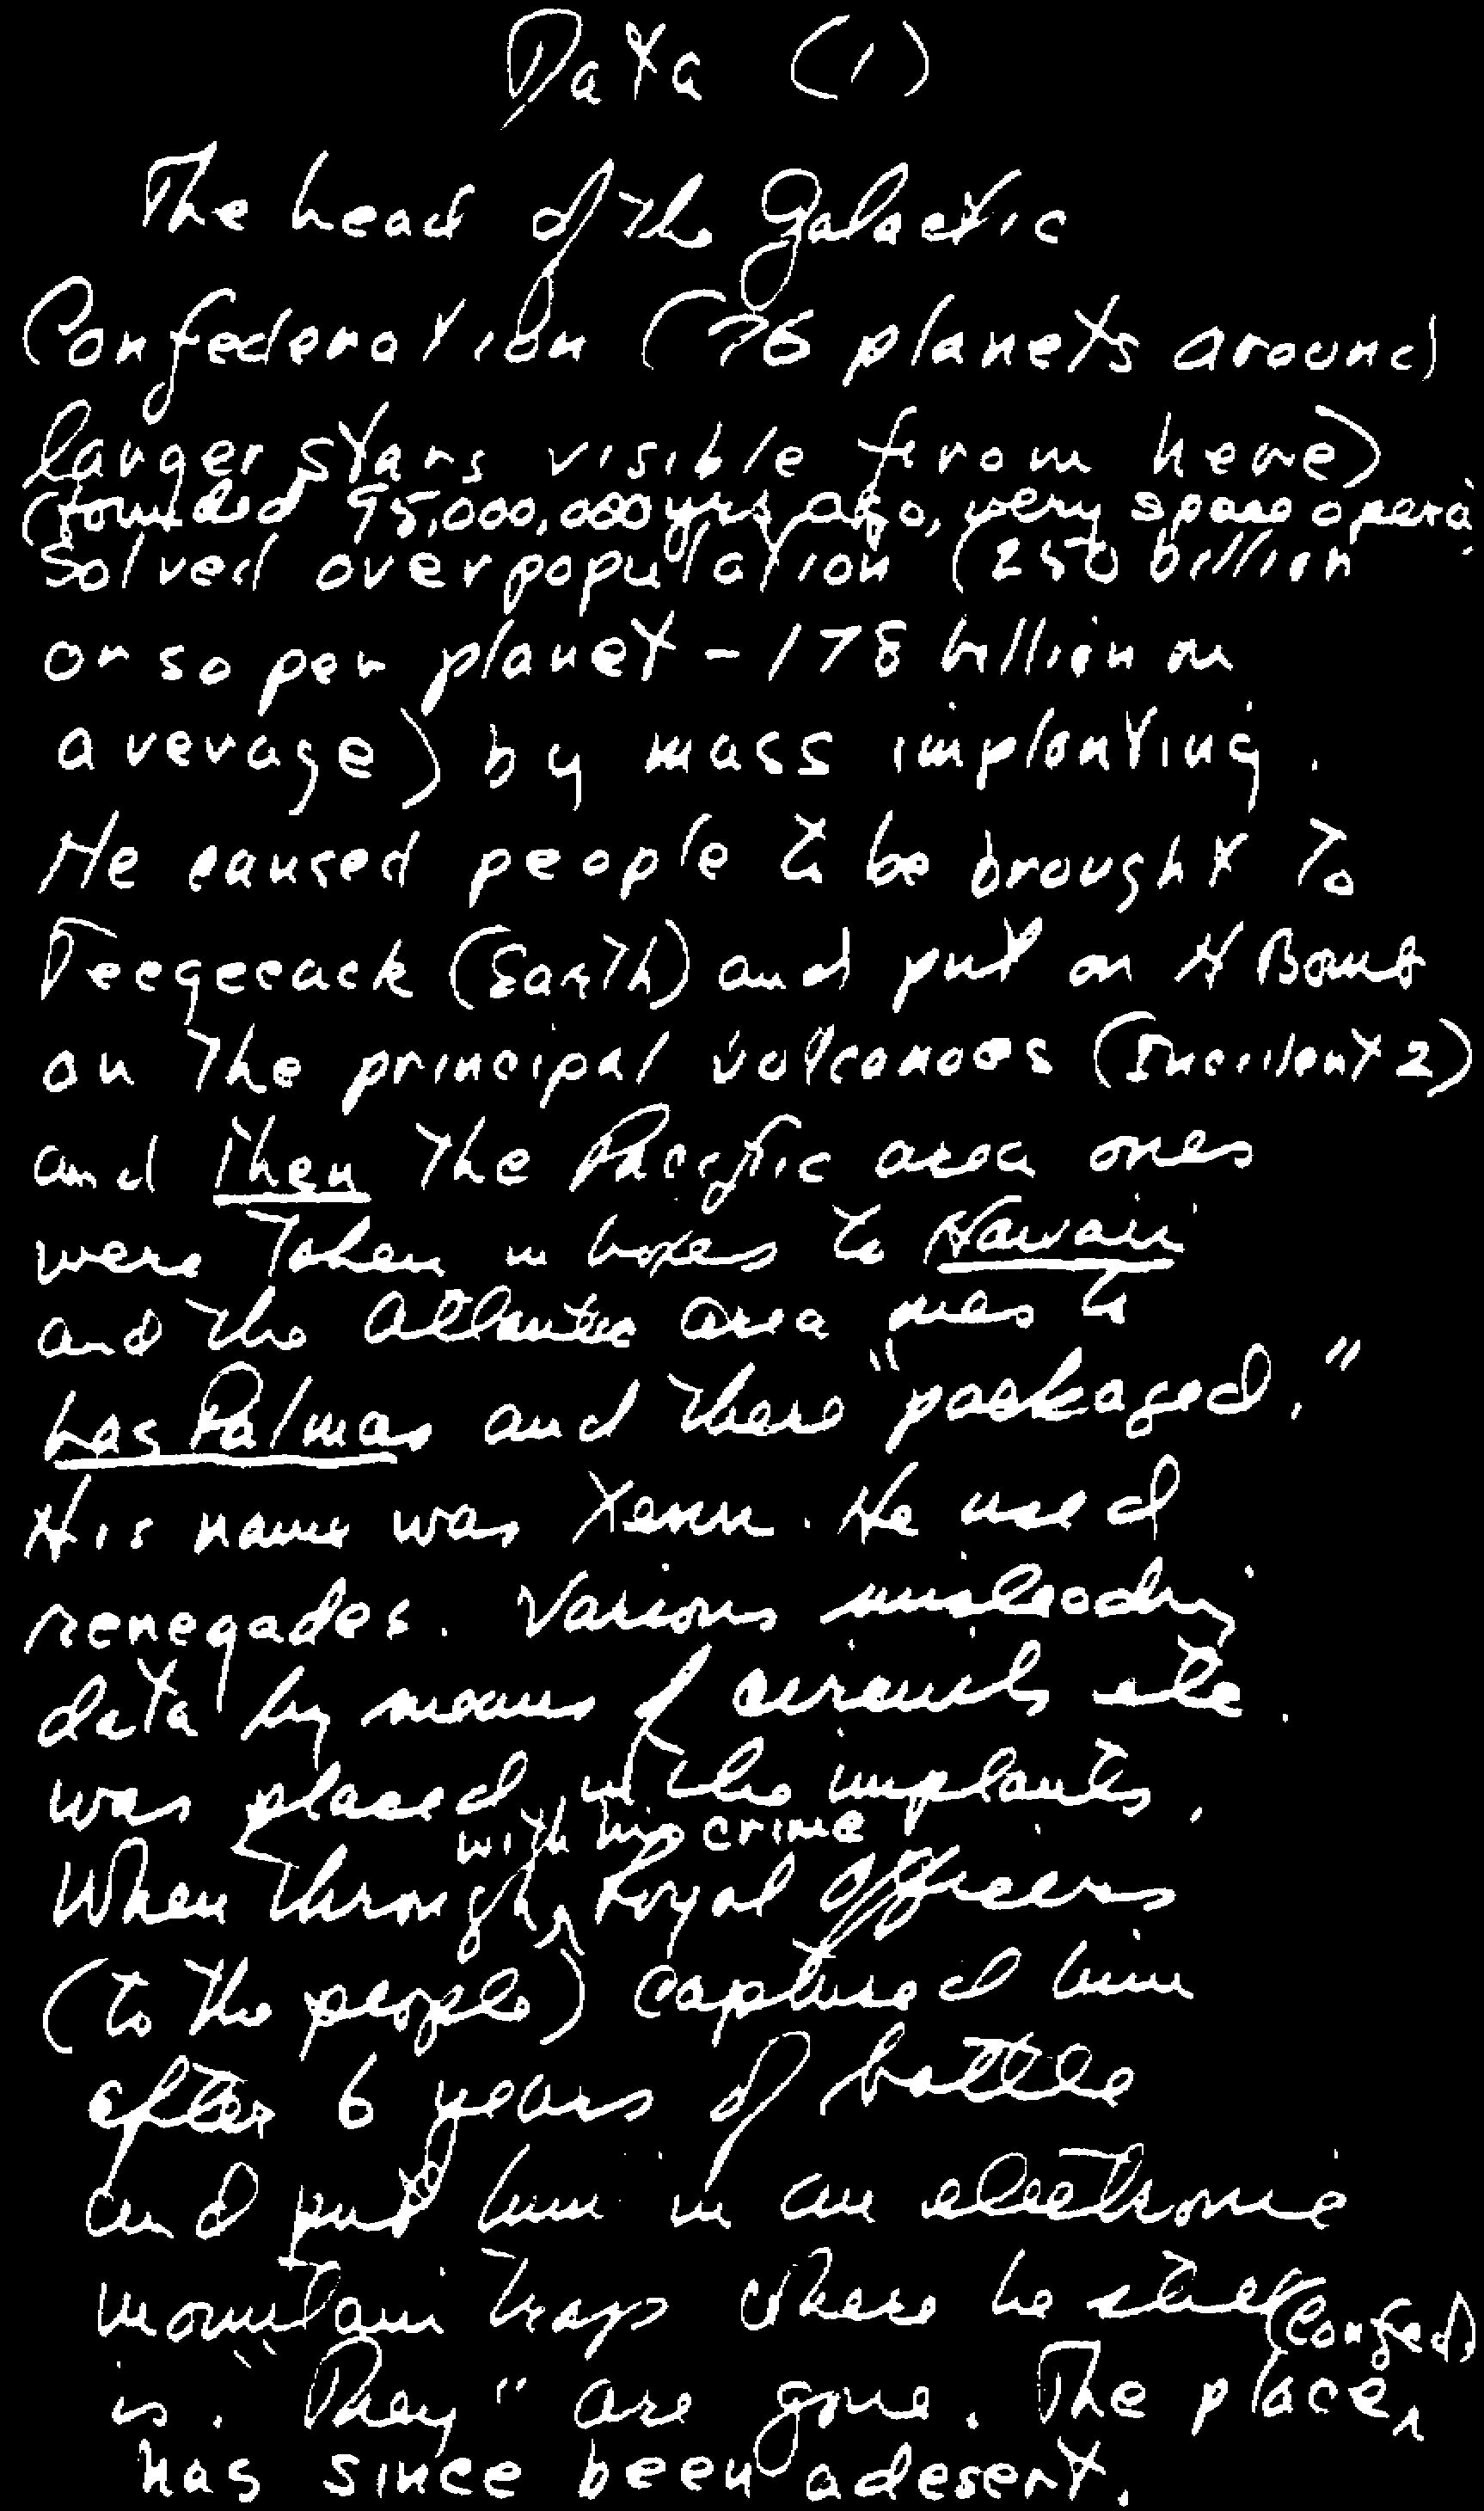 Data (1)
The head of the Galactic
Confederation (76 planets around
larger stars visible from here)
(founded 95,000,000 yrs ago, very space opera)
solved overpopulation (250 billion
or so per planet - 178 billion on
average) by mass implanting.
He caused people to be brought to
Teegeeack (Earth) and put an H Bomb
on the principal volcanoes (Incident 2)
and then the Pacific area ones
were taken in boxes to Hawaii
and the Atlantic area ones to
Las Palmas and there "packaged."
His name was Xenu. He used
renegades. Various misleading
data by means of circuits etc.
was placed in the implants.
with his crime
When through ^ Royal Officers
(to the people) captured him
after 6 years of battle
and put him in an electronic
mountain trap where he still
(confed)
is. "They" are gone. The place ^
has since been a desert.